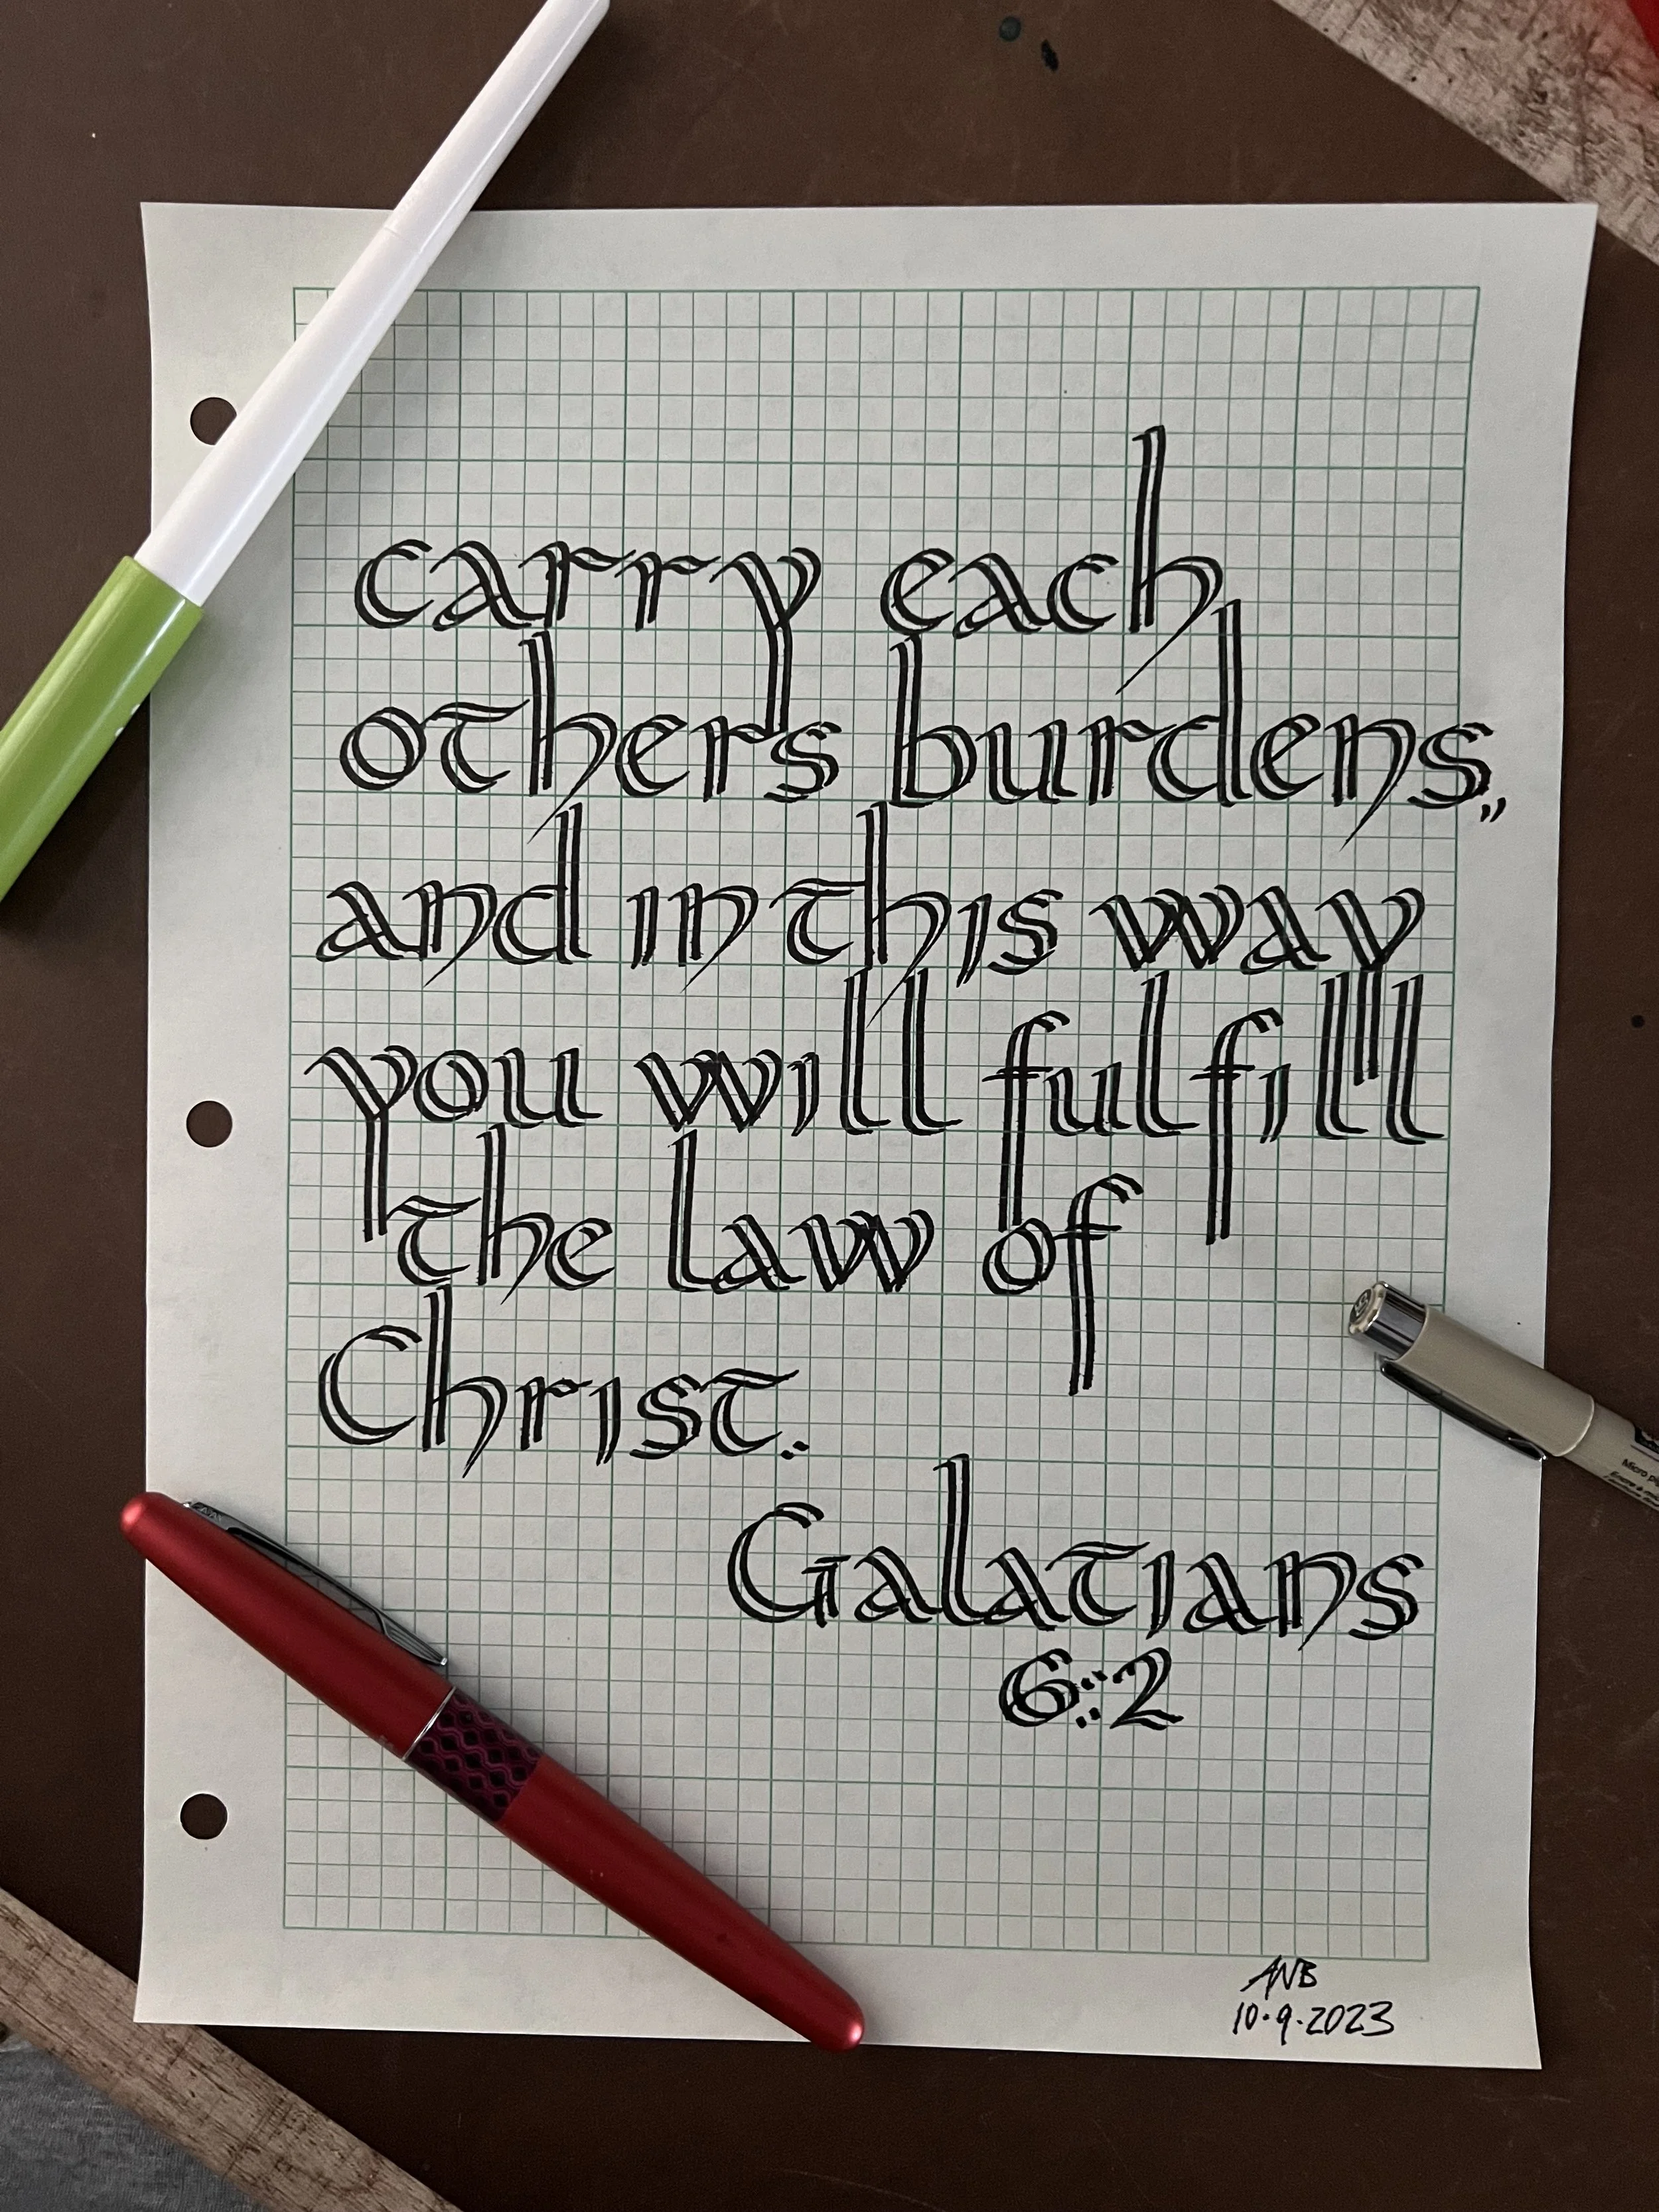 carry each
others burdens,
and in this way
you will fulfill
the law of
Christ.
Galatians
6:2
ANB
10.9.2023
Micro